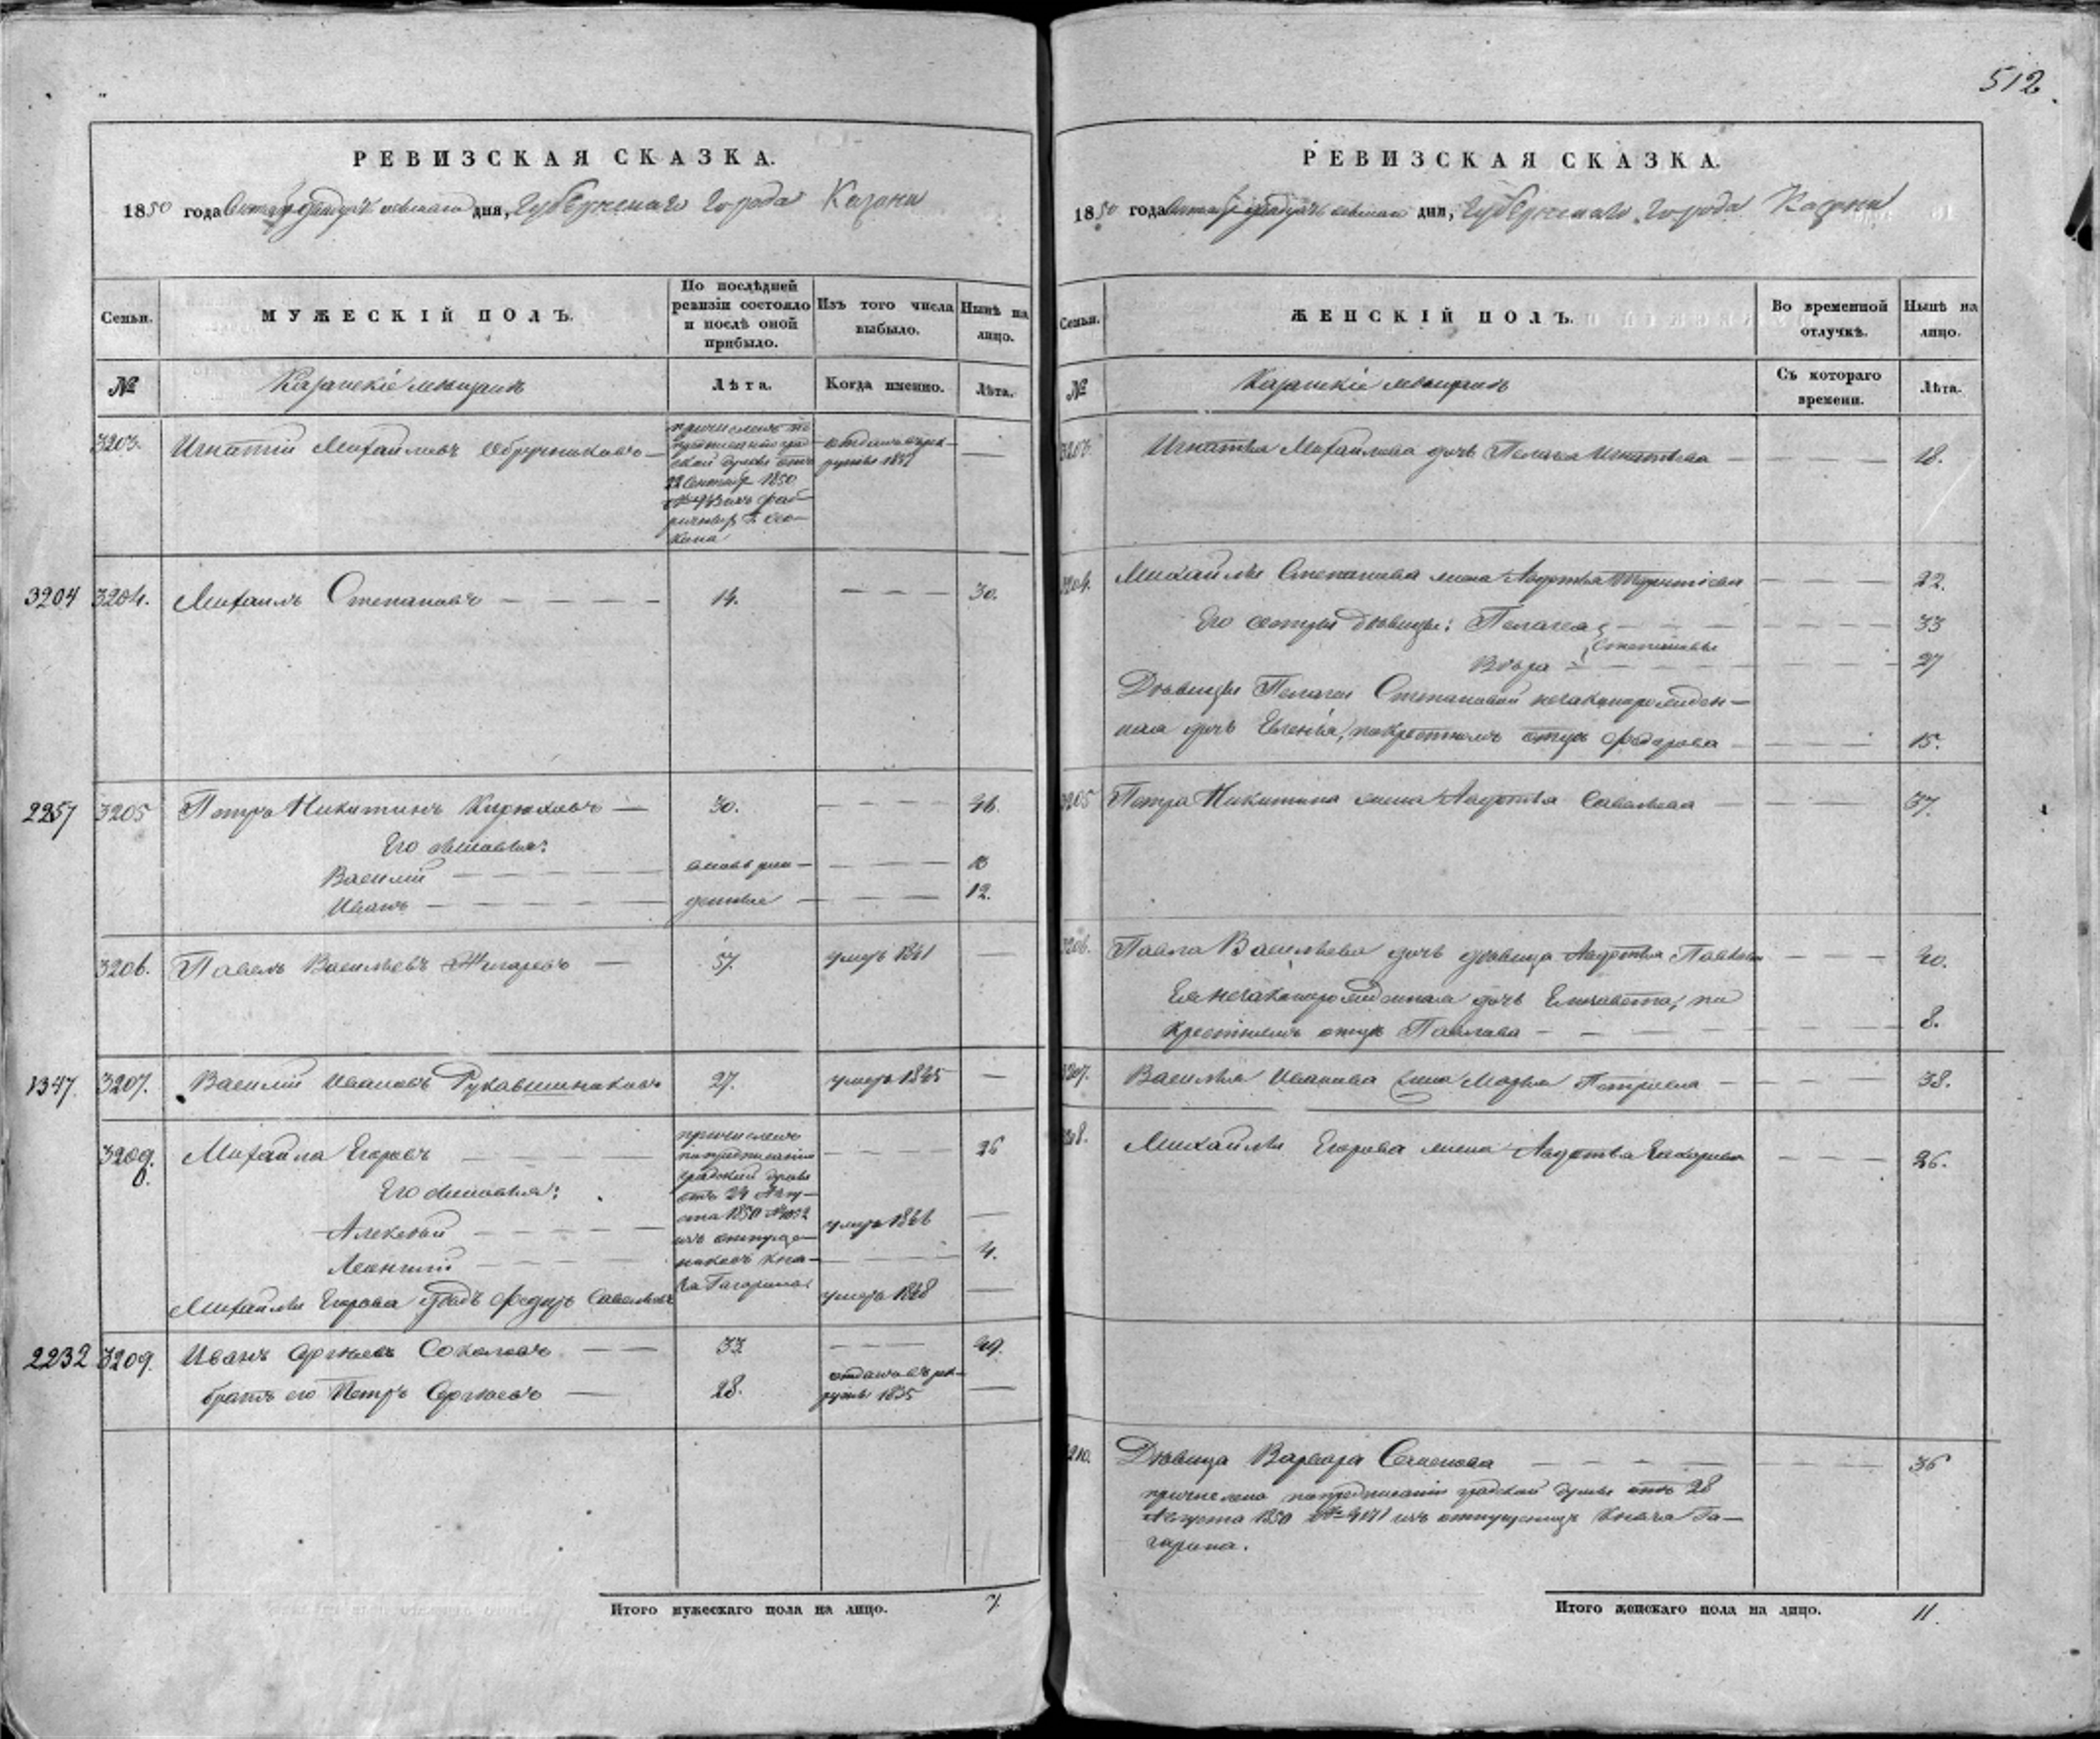 512.
РЕВИЗСКАЯ СКАЗКА.
1850 года Октября дня, Губернскаго города Казани
Семьи.
МУЖЕСКІЙ ПОЛЪ.
По послѣдней ревизіи состояло и послѣ оной прибыло.
Изъ того числа выбыло.
Нынѣ на лицо.
№
Казанскіе мѣщане
Лѣта.
Когда именно.
Лѣта.
3203. Игнатій Михайловъ Обручниковъ —
причисленъ по
22 Сентября 1850
отданъ въ рек-
руты
3204 3204. Михаилъ Степановъ — — — — 14. — — — 30.
2257 3205 Петръ Никитинъ Кирюховъ — 30. — — — 46.
Его сыновья:
Василій — — — — вновь рож- — — —
Иванъ — — — — денные — — — — 12.
3206. Павелъ Васильевъ Жигаревъ — 57. умеръ 1841 —
1347. 3207. Василій Ивановъ Рукавишниковъ 27. умеръ 1845 —
3208. Михайла Егоровъ — — — — — — — 26
причисленъ
по предписанію
градской думы
отъ 24 Авгу-
ста 1850 №
изъ отпуще-
никовъ кня-
зя Гагарина
Его сыновья:
Алексѣй — — — — умеръ 1846 —
Леонтій — — — — — — — 4.
Михайлы Егорова Федоръ Савельевъ умеръ 1848 —
2232 3209. Иванъ Сергѣевъ Соколовъ — — 33. — — — 49.
братъ его Петръ Сергѣевъ — 28. отданъ въ рек-
руты 1835 —
Итого мужескаго пола на лицо. 7.
РЕВИЗСКАЯ СКАЗКА.
1850 года Октября дня, Губернскаго города Казани
Семьи.
ЖЕНСКІЙ ПОЛЪ.
Во временной отлучкѣ.
Нынѣ на лицо.
№
Казанскіе мѣщане
Съ котораго времени.
Лѣта.
3203. Игнатья Михайлова дочь Пелагея Игнатьева — — — — 18.
3204. Михайлы Степанова жена Авдотья Терентьева — — — 22.
Его сестры дѣвицы: Пелагея — — — — 33
Степановы
Вѣра — — — — 27
Дѣвицы Пелагеи Степановой незаконорожден-
ная дочь Евгенія, по крестномъ отцѣ Федорова — — — — 15.
3205 Петра Никитина жена Авдотья Савельева — — — 37.
3206. Павла Васильева дочь дѣвица Авдотья Павлова — — — 40.
Ея незаконорожденная дочь Елизавета, по
крестномъ отцѣ Павлова — — — 8.
3207. Василья Иванова жена Марья Петрова — — — — 38.
3208. Михайлы Егорова жена Авдотья Захарова — — — 26.
3210. Дѣвица Варвара Семенова — — — — — — 36
причислена по предписанію градской думы отъ 28
Августа 1850 № 4171 изъ отпущеницъ Князя Га-
гарина.
Итого женскаго пола на лицо. 11.